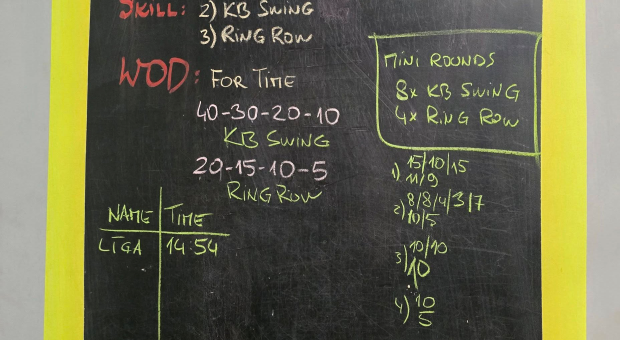 SKILL: 2) KB SWING
3) RING ROW
WOD: FOR TIME
40-30-20-10
KB SWING
20-15-10-5
RING ROW
NAME TIME
LĪGA 14:54
MINI ROUNDS
8x KB SWING
4x RING ROW
1) 15/10/15
11/9
2) 8/8/4/3/7
10/5
3) 10/10
10
4) 10
5